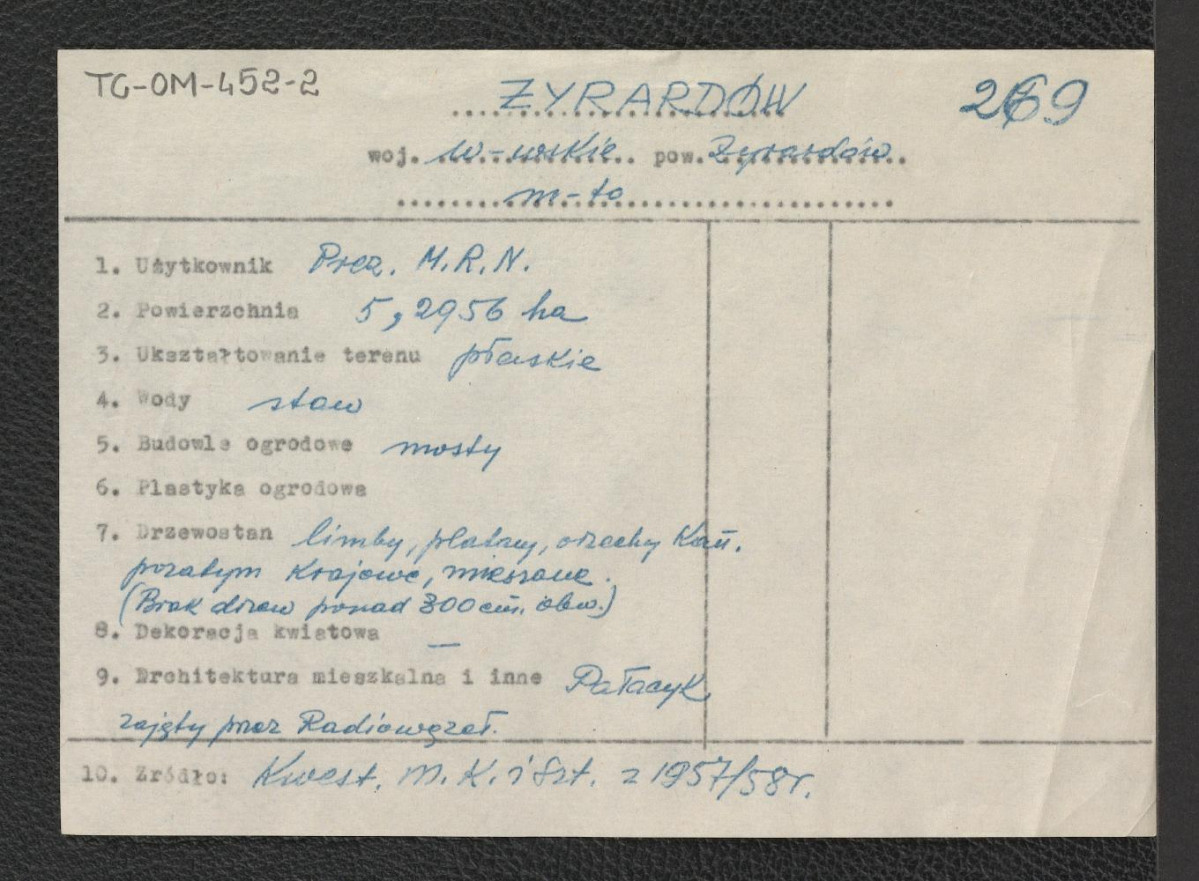 TG-OM-452-2
ŻYRARDÓW
269
woj. W-wskie pow. Żyrardów
m-to
1. Użytkownik Prez. M.R.N.
2. Powierzchnia 5,2956 ha
3. Ukształtowanie terenu płaskie
4. Wody staw
5. Budowle ogrodowe mosty
6. Plastyka ogrodowa
7. Drzewostan limby, platany, orzechy Kau.
pozatym Krajowe, mieszane.
(Brak drzew ponad 300 cm. obw.)
8. Dekoracja kwiatowa —
9. Architektura mieszkalna i inne Pałacyk
zajęty przez Radiowęzeł.
10. Źródło: Kwest. M.K. i Szt. z 1957/58r.